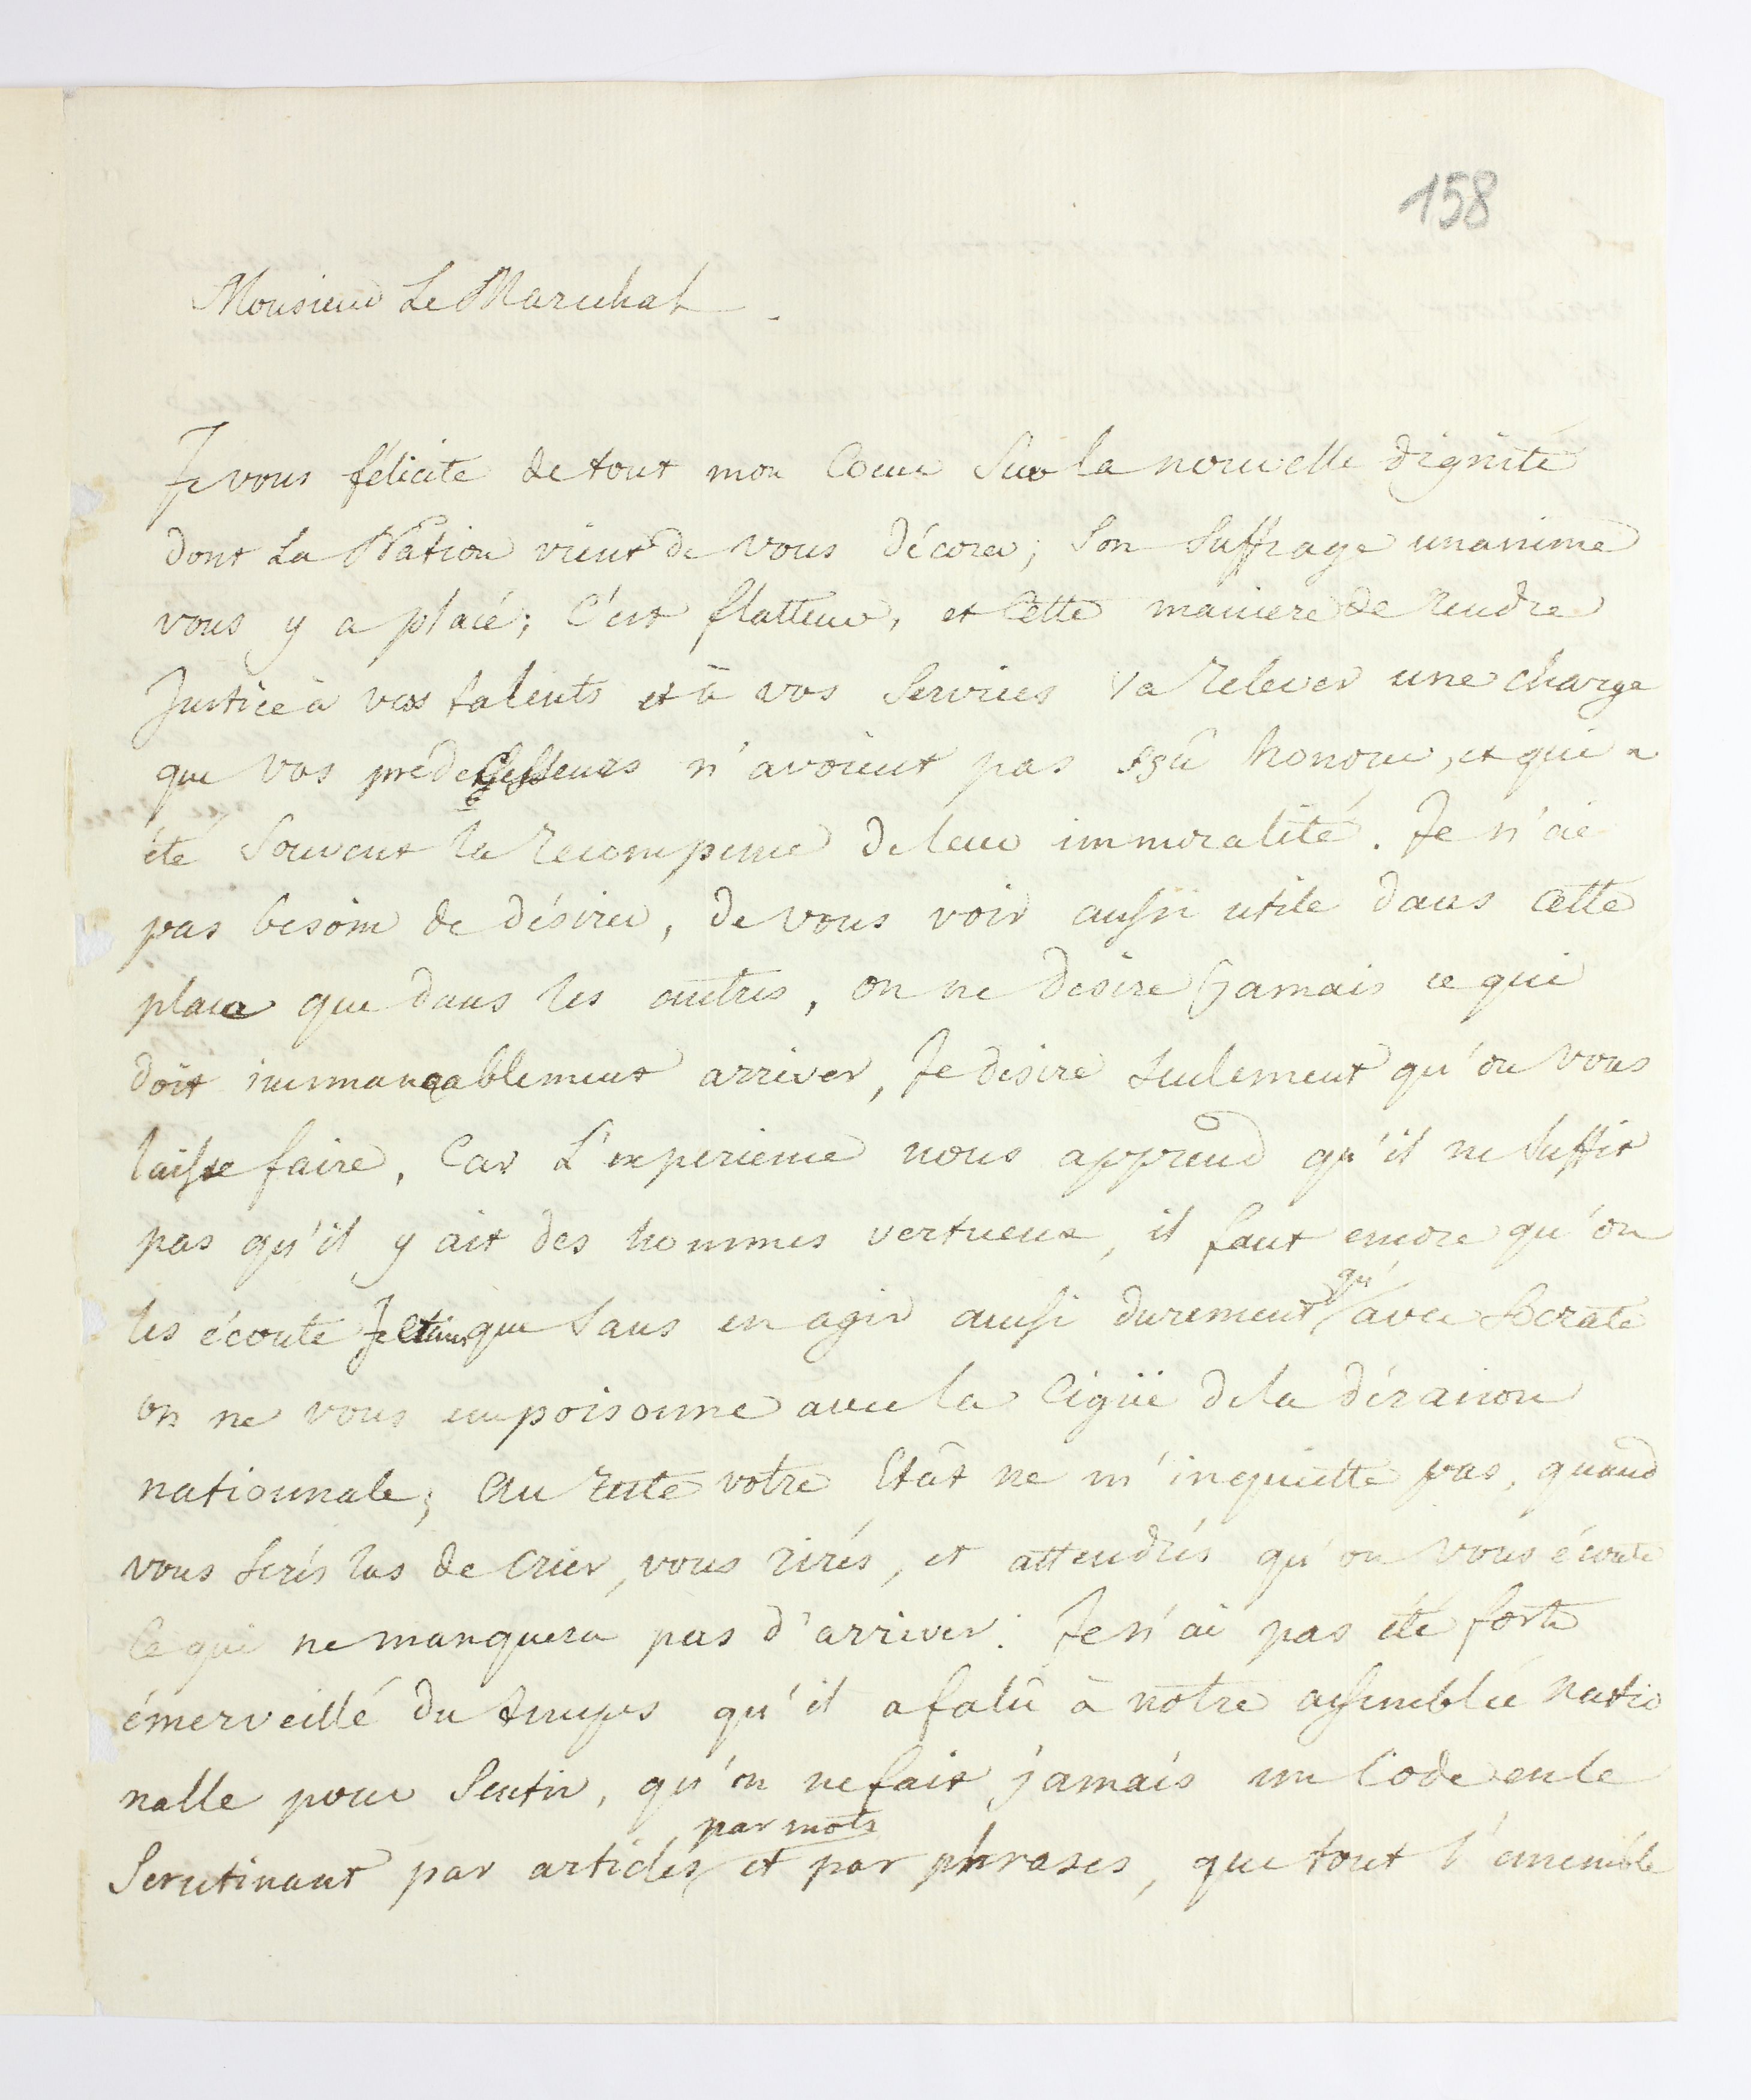 158
Monsieur Le Marechal
Je vous félicite de tout mon Coeur Sur la nouvelle dignité
dont La Nation vient de vous décorer; Son Suffrage unanime
vous y a placé; C'est flatteur, et Cette maniere de rendre
Justice à vos talents et à vos Services va relever une charge
que vos prédecesseurs n'avoient pas sçû honorer, et qui a
été Souvent la recompense de leur immoralité. Je n'ai
pas besoin de désirer, de vous voir aussi utile dans Cette
place que dans les autres, on ne desire jamais ce qui
doit immancablement arriver, Je desire seulement qu'on vous
laisse faire, Car L'experience nous apprend qu'il ne Suffit
pas qu'il y ait des hommes vertueux, il faut encore qu'on
les écoute Je crains que Sans en agir aussi durement qu'avec Socrate
on ne vous empoisonne avec la Cigüe de la déraison
nationnale; Au reste votre Etat ne m'inquiette pas, quand
vous serés las de crier, vous rirés, et attendrés qu'on vous écoute
Ce qui ne manquera pas d'arriver. Je n'ai pas été fort
émerveillé du temps qu'il a falû à notre assemblée natio
nalle pour Sentir, qu'on ne fait jamais un Code en le
Scrutinant par articles, par mots et par phrases, que tout l'ensemble